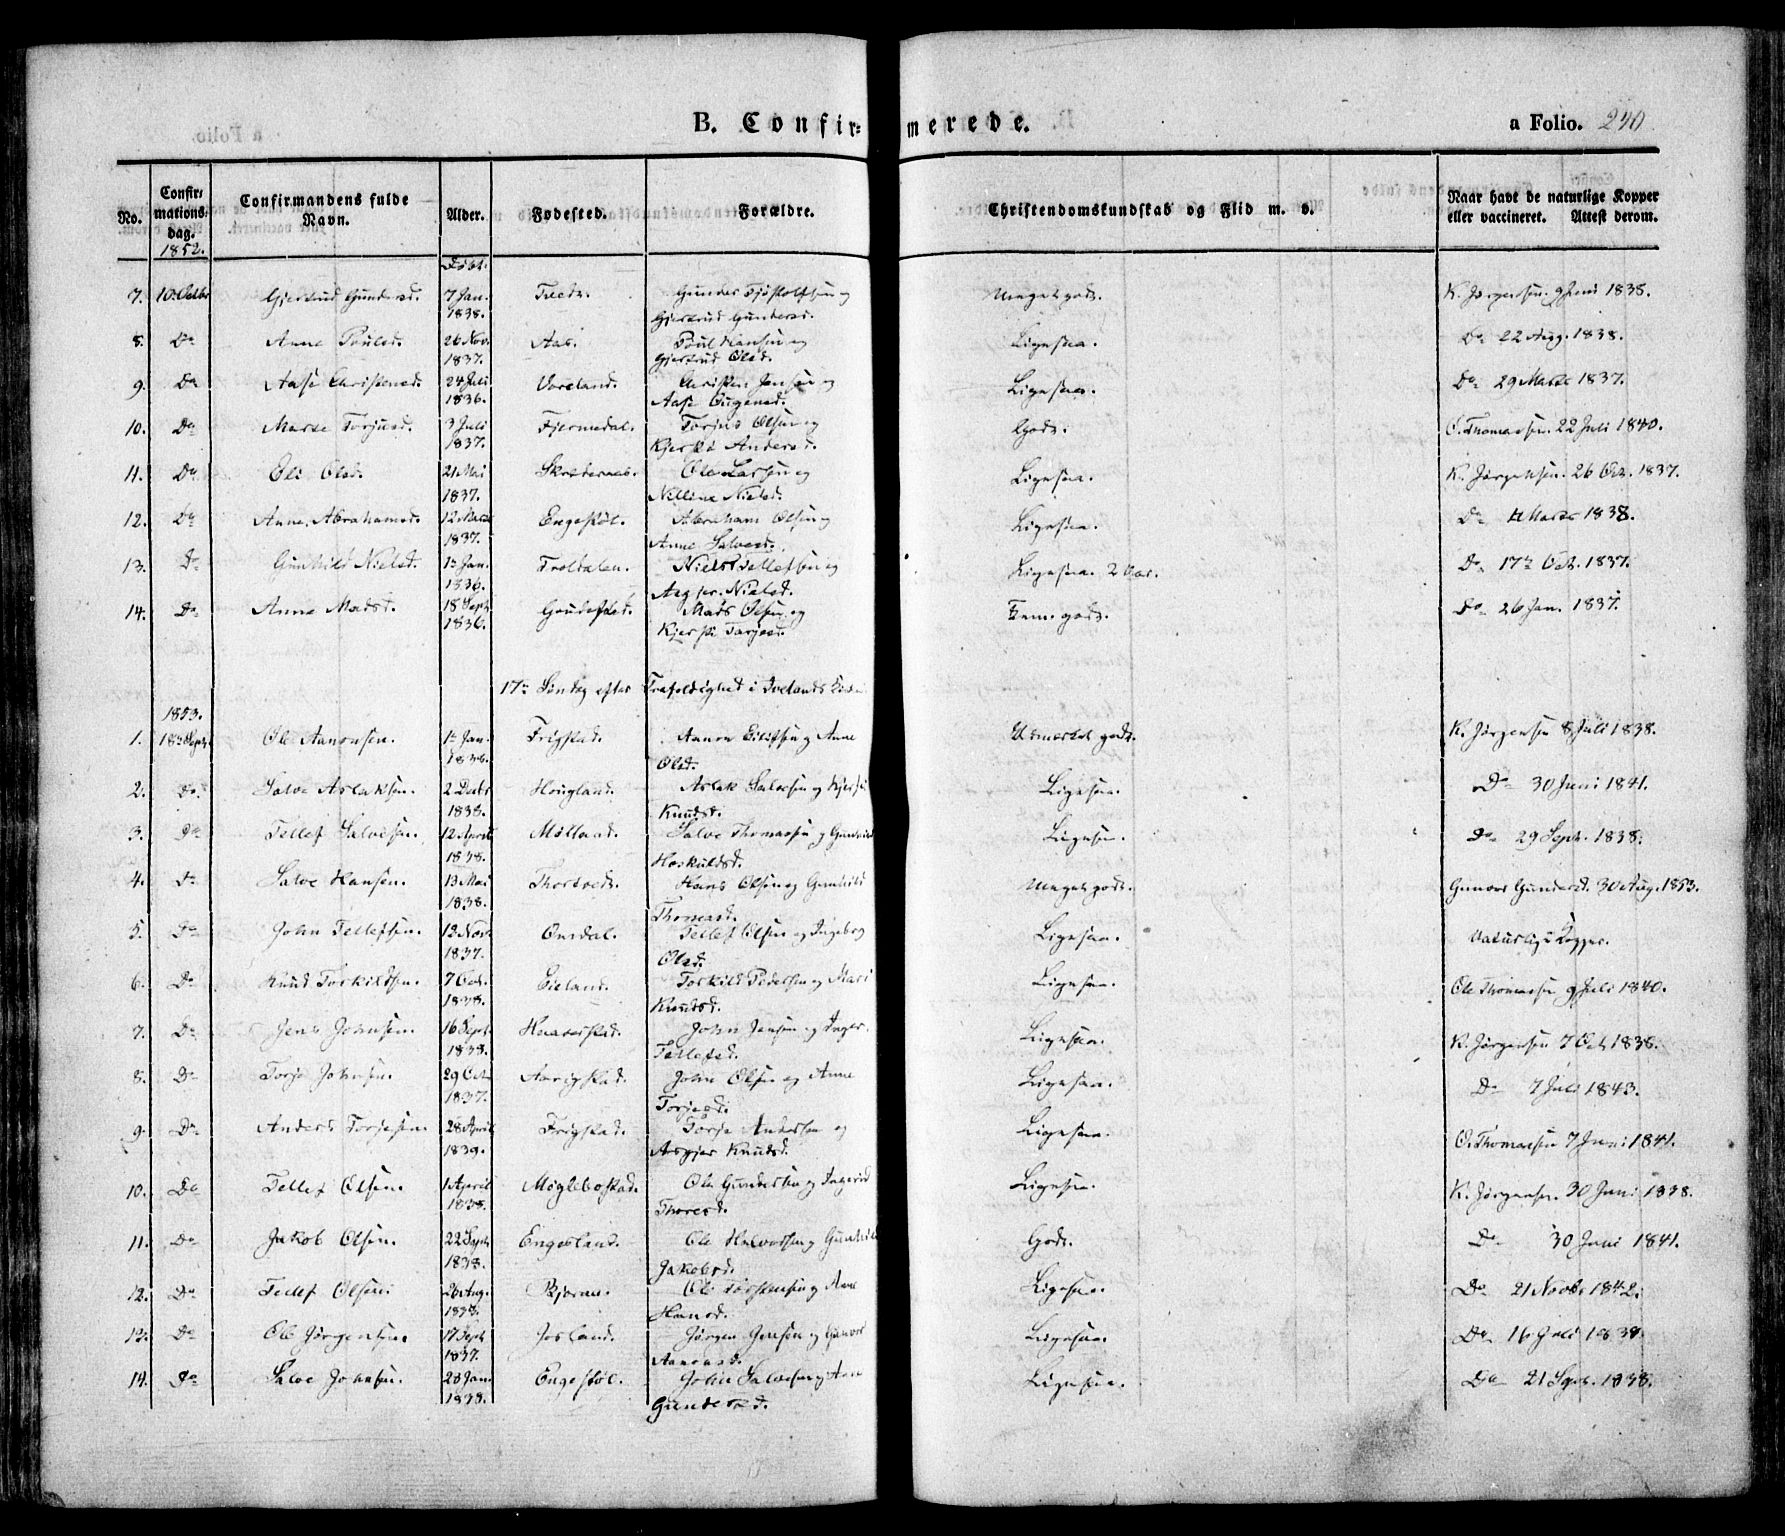 B. Confir- merede.
a Folio. 240
No.
Confirmations dag.
Confirmandens fulde Navn.
Alder.
Fødested.
Forældre.
Christendomskundskab og Flid m. v.
Naar havt de naturlige Kopper eller vaccineret. Attest derom.
1852.
Døbt.
7. 10. Octbr Gjertrud Gundersd. 7 Jan. Tvedt. Gunder og Meget godt. K. Jørgensen 9 Juni 1838.
1838. Gjertrud Gundersd.
8. Do Anne Poulsd. 26 Nov. Aas. Poul Hansen og Ligesaa. Do 22 Aug. 1838.
1837. Gjertrud Olsd.
9. Do Aase Christensd. 24 Juli Voreland. Christen Jensen og Ligesaa. Do 29 Marts 1837.
1836. Aase
10. Do Marte Torjusd. 3 Juli Fjermedal. Torjus Olsen og Godt. O. Thomassen 22 Juli 1840.
1837. Kjersti Andersd.
11. Do Oli Olsd. 21 Mai Ole Larsen og Ligesaa. K. Jørgensen 26 Oct. 1837.
1837. Nilline Nielsd.
12. Do Anne Abrahamsd. 12 Marts Engestøl. Abraham Olsen og Ligesaa. Do Marts 1838.
1837. Anne Salvesd.
13. Do Gunhild Nielsd. 1 Jan. Troldalen. Niels Tellefsen og Ligesaa. Do 17 Oct. 1837.
1836. Nielsd.
14. Do Anne Madsd. 18 Sept. Mads Olsen og Do 26 Jan. 1837.
1836. Kjersti Torjusd.
17de Søndag efter Trefoldighed i Ivelands
1853.
1. 18de Septr Ole Aanonsen. 1 Jan. Frigstad. Aanon Eilefsen og Anne Udmerket godt. K. Jørgensen 8 Juli 1838.
1838. Olsd.
2. Do. Salve Aslaksen. 2 Decbr Hougland. Aslak Salvesen og Kjersti Ligesaa. Do 30 Juni 1841.
1838. Knudsd.
3. Do Tellef Salvesen. 12 April Mølland. Salve Thomassen og Gunhild Ligesaa. Do 29 Sept. 1838.
1838. Hoskuldsd.
4. Do Salve Hansen. 13 Mai Thortvedt. Hans Olsen og Gunhild Meget godt. Gunvor Gundersd. 30 Aug. 1853.
1838. Thomasd.
5. Do John Tellefsen. 12 Nov. Omdal. Tellef Olsen og Ingeborg Ligesaa. Naturlige Kopper.
1837. Olsd.
6. Do Knud Torkildsen. 7 Oct. Eieland. Torkild Pedersen og Mari Ligesaa. Ole Thomassen 9 Juli 1840.
1838. Knudsd.
7. Do Jens Johnsen. 16 Sept. John Jensen og Inger Ligesaa. K. Jørgensen 7 Oct 1838.
1838. Tellefsd.
8. Do Torje Johnsen. 29 Oct. John Olsen og Anne Ligesaa. Do 7 Juli 1843.
1837. Torjesd.
9. Do Anders Torjesen. 28 April Frigstad. Torje Andersen og Ligesaa. O. Thomassen 7 Juni 1841.
1839. Asgjer Knudsd.
10. Do Tellef Olsen. 1 April Møglebostad. Ole Gundersen og Ingerid Ligesaa. K. Jørgensen 30 Juni 1838.
1838. Thoresd.
11. Do Jakob Olsen. 22 Sept. Engesland. Ole Halvorsen og Gunhild Godt. Do 30 Juni 1841.
1838. Jakobsd.
12. Do Tellef Olsen. 26 Aug. Bjorum. Ole Torstensen og Anne Ligesaa. Do 21 Novbr 1842.
1838. Hansd.
13. Do Ole Jørgensen. 17 Sept. Josland. Jørgen Jensen og Gunvor Ligesaa. Do 16 Juli 1838.
1837. Aanonsd.
14. Do Salve Johnsen. 28 Jan. Engestøl. John Salvesen og Anne Ligesaa. Do 21 Sept. 1838.
1838. Gundersd.